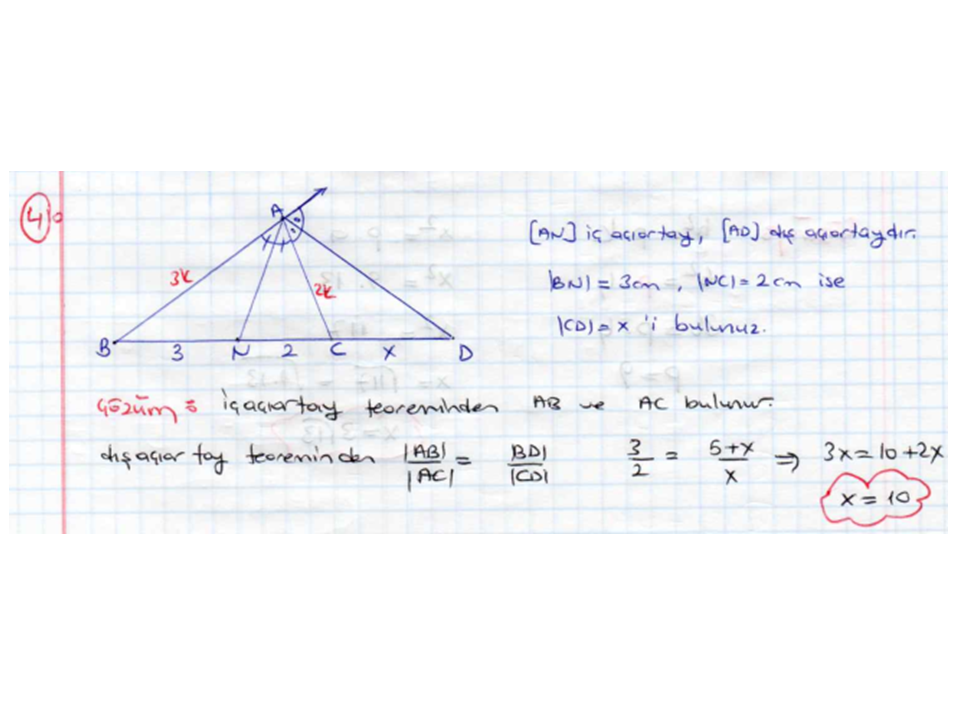 4)
A
[AN] iç açıortay, [AD] dış açıortaydır.
3k
2k
|BN| = 3cm, |NC| = 2cm ise
|CD| = x 'i bulunuz.
B 3 N 2 C x D
Çözüm: İçaçıortay teoreminden AB ve AC bulunur.
dışaçıor tay teoreminden |AB|/|AC| = |BD|/|CD| 3/2 = 5+x/x ⇒ 3x = 10 + 2x
x = 10